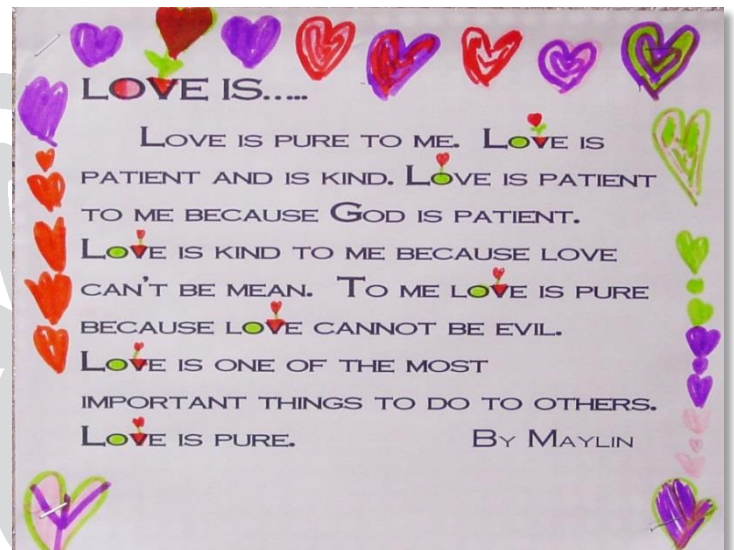 LOVE IS.....
LOVE IS PURE TO ME. LOVE IS
PATIENT AND IS KIND. LOVE IS PATIENT
TO ME BECAUSE GOD IS PATIENT.
LOVE IS KIND TO ME BECAUSE LOVE
CAN'T BE MEAN. TO ME LOVE IS PURE
BECAUSE LOVE CANNOT BE EVIL.
LOVE IS ONE OF THE MOST
IMPORTANT THINGS TO DO TO OTHERS.
LOVE IS PURE. BY MAYLIN